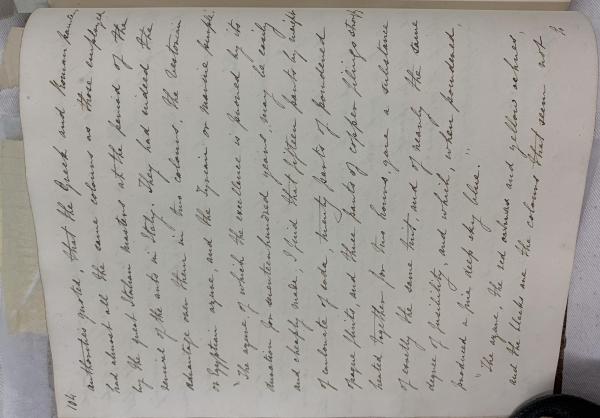 104
authorities quoted, that the Greek and Roman painters
had almost all the same colours as those employed
by the great Italian masters at the period of the
revival of the arts in Italy. They had indeed the
advantage over them in two colours, the Vestorian
or Egyptian azure, and the Tyrian or marine purple.
"The azure of which the excellence is proved by its
duration for seventeen hundred years, may be easily
and cheaply made, I find that fifteen parts by weight
of carbonate of soda, twenty parts of powdered
opaque flints, and three parts of copper filings strongly
heated together for two hours, gave a substance
of exactly the same tint, and of nearly the same
degree of fusibility, and which, when powdered,
produced a fine deep sky blue."
"The azure, the red ochres and yellow ochres,
and the blacks are the colours that seem not